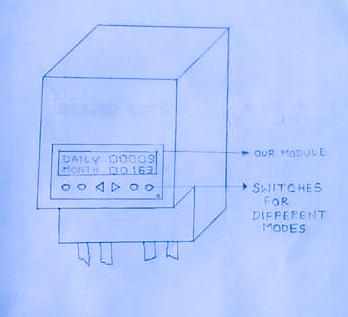 DAILY 00009
MONTH 00163
OUR MODULE
SWITCHES
FOR
DIFFERENT
MODES